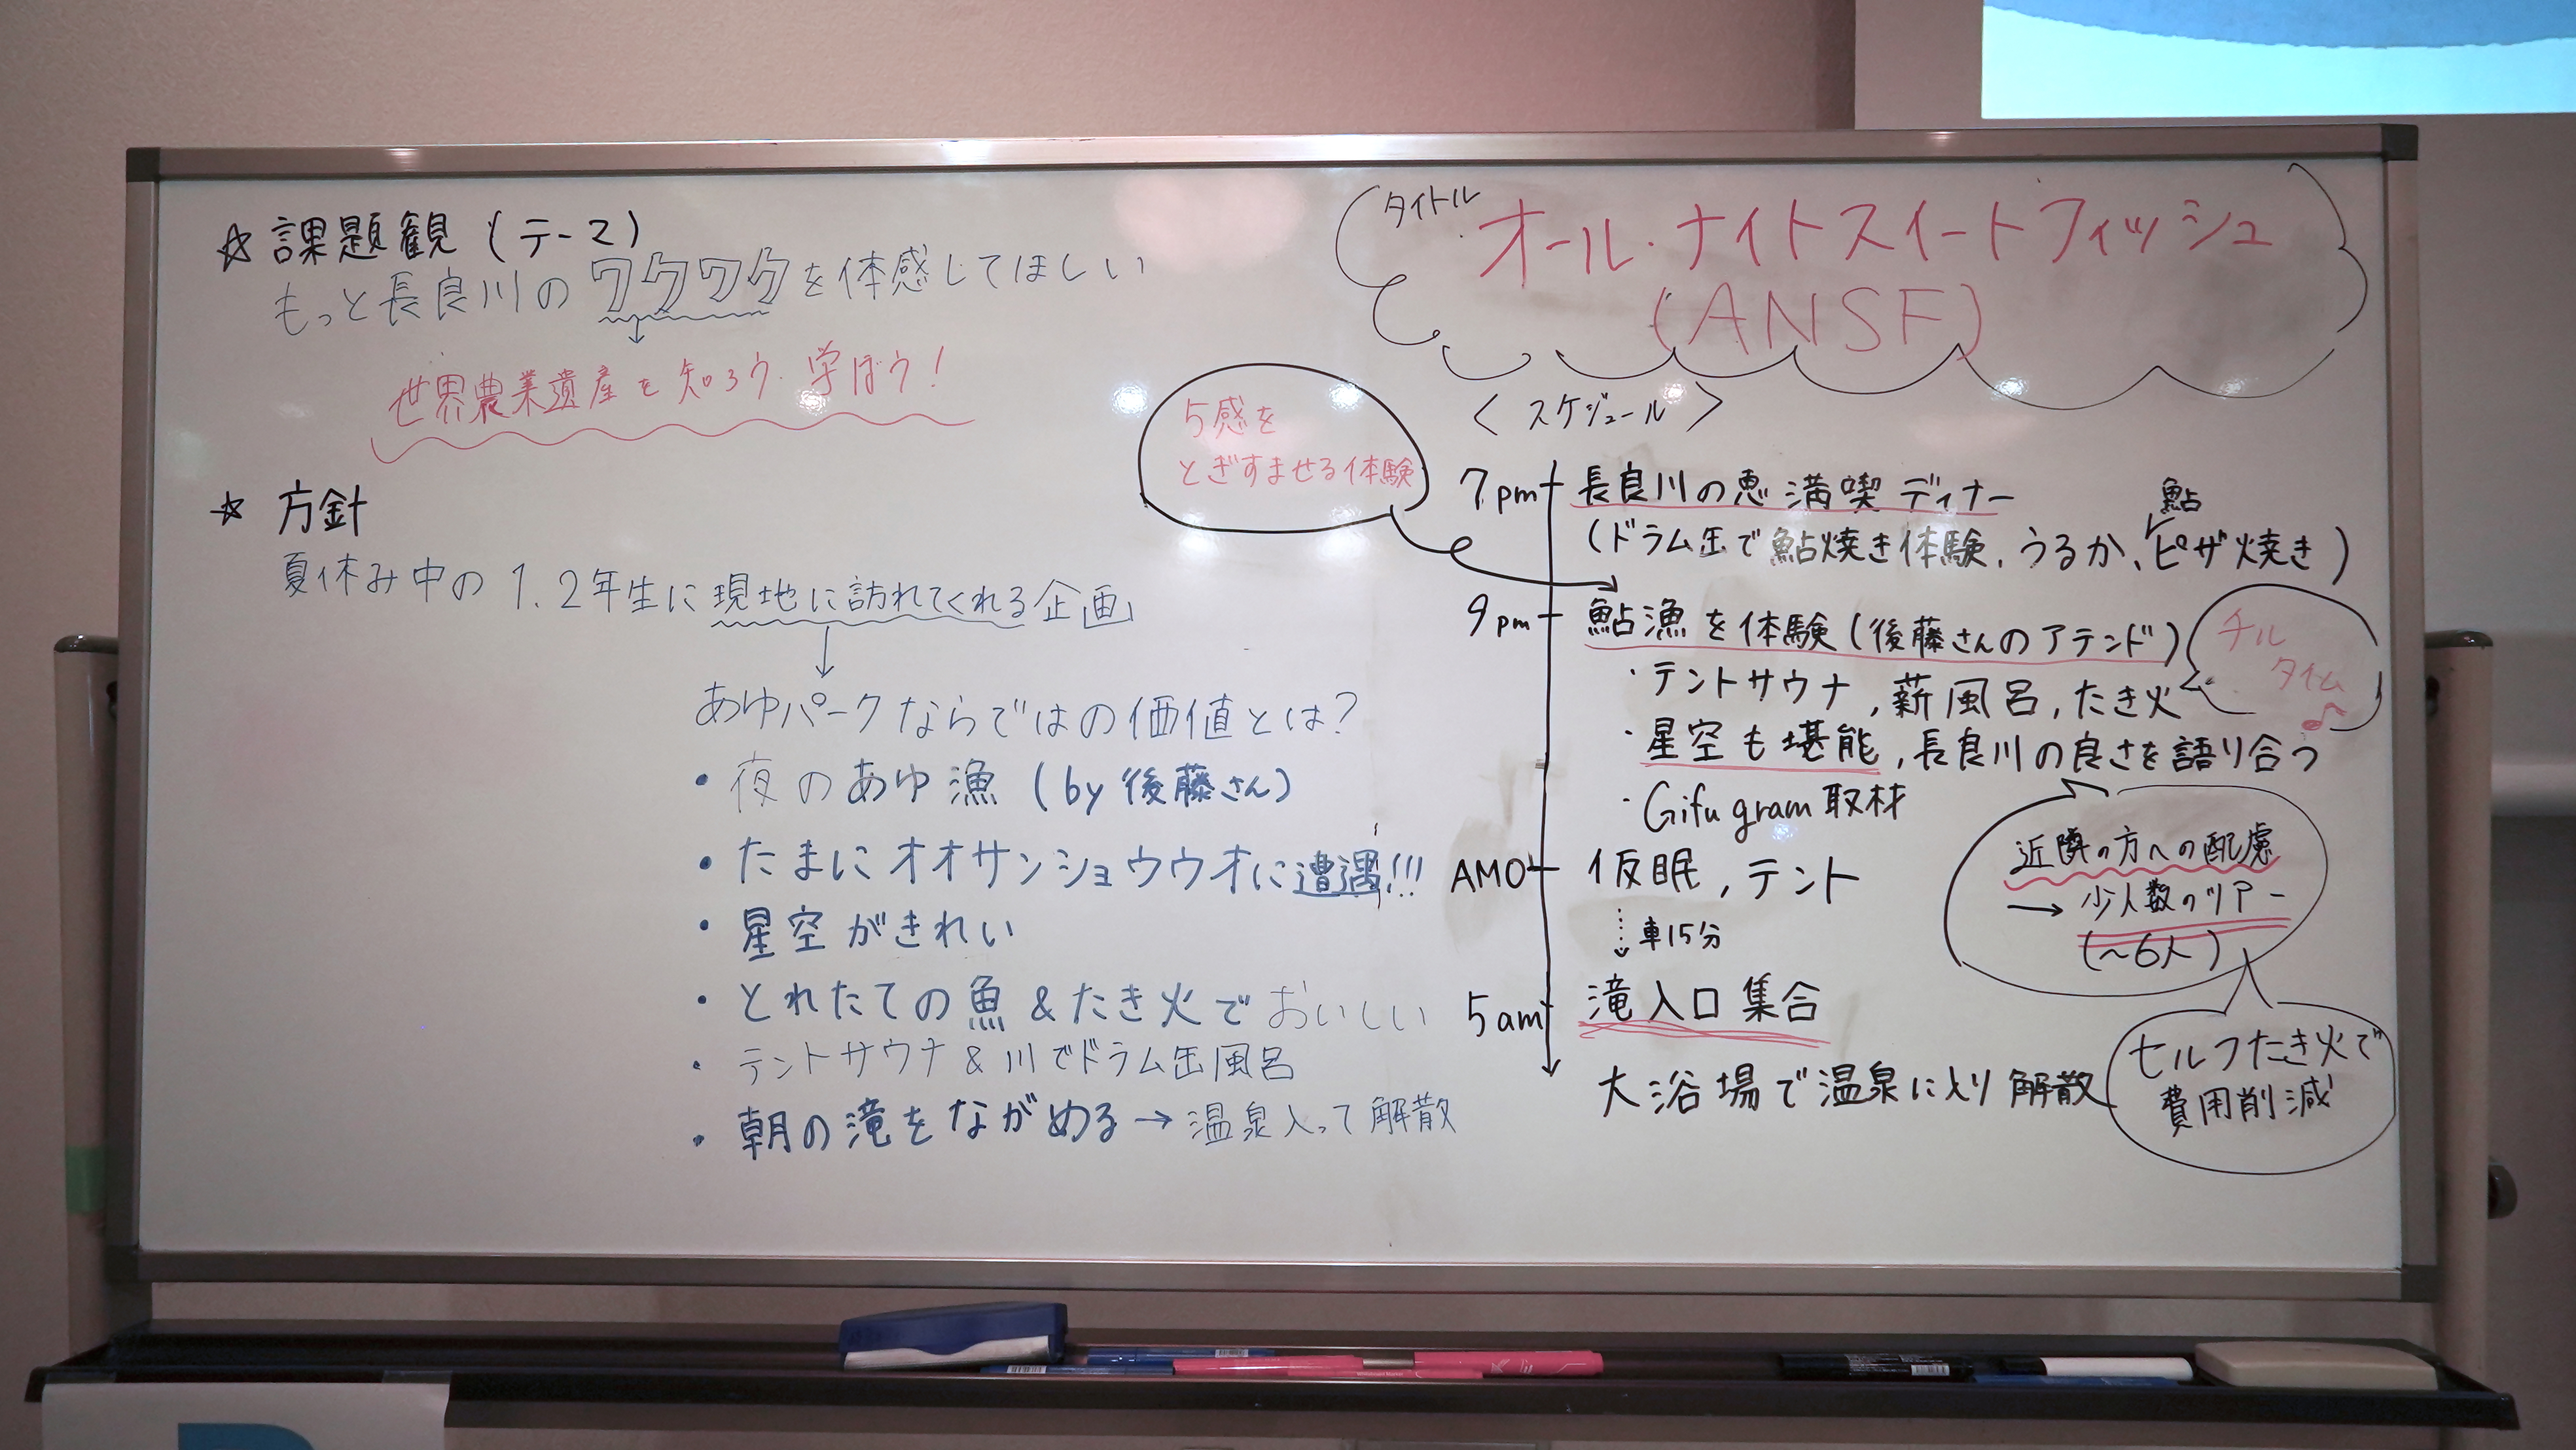 ☆ 課題観 (テーマ)
もっと長良川のワクワクを体感してほしい
↓
世界農業遺産を知ろう・学ぼう!
☆ 方針
夏休み中の1、2年生に現地に訪れてくれる企画
↓
あゆパークならではの価値とは?
・夜のあゆ漁 (by 後藤さん)
・たまにオオサンショウウオに遭遇!!!
・星空がきれい
・とれたての魚&たき火でおいしい
・テントサウナ&川でドラム缶風呂
・朝の滝をながめる→温泉入って解散
タイトル
オール・ナイトスイートフィッシュ
(ANSF)
<スケジュール>
5感を
とぎすませる体験
7pm 長良川の恵満喫ディナー
鮎
(ドラム缶で鮎焼き体験、うるか、ピザ焼き)
9pm 鮎漁を体験(後藤さんのアテンド)
・テントサウナ, 薪風呂, たき火
チル
タイム♪
・星空も堪能, 長良川の良さを語り合う
・Gifu gram 取材
近隣の方への配慮
→ 少人数のツアー
(~6人)
AM0 仮眠, テント
↓ 車15分
5am 滝入口集合
大浴場で温泉に入り解散
セルフたき火で
費用削減